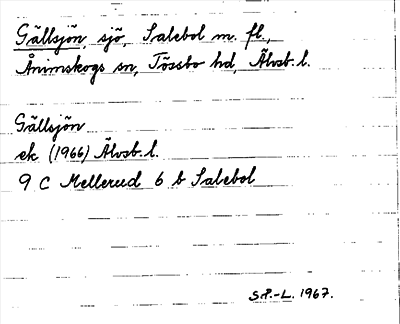 Gällsjön, sjö, Salebol m. fl.,
Ånimskogs sn, Tössbo hd, Älvsb. l.
Gällsjön
ek (1966) Älvsb. l.
9 C Mellerud 6 b Salebol
S.P.-L. 1967.